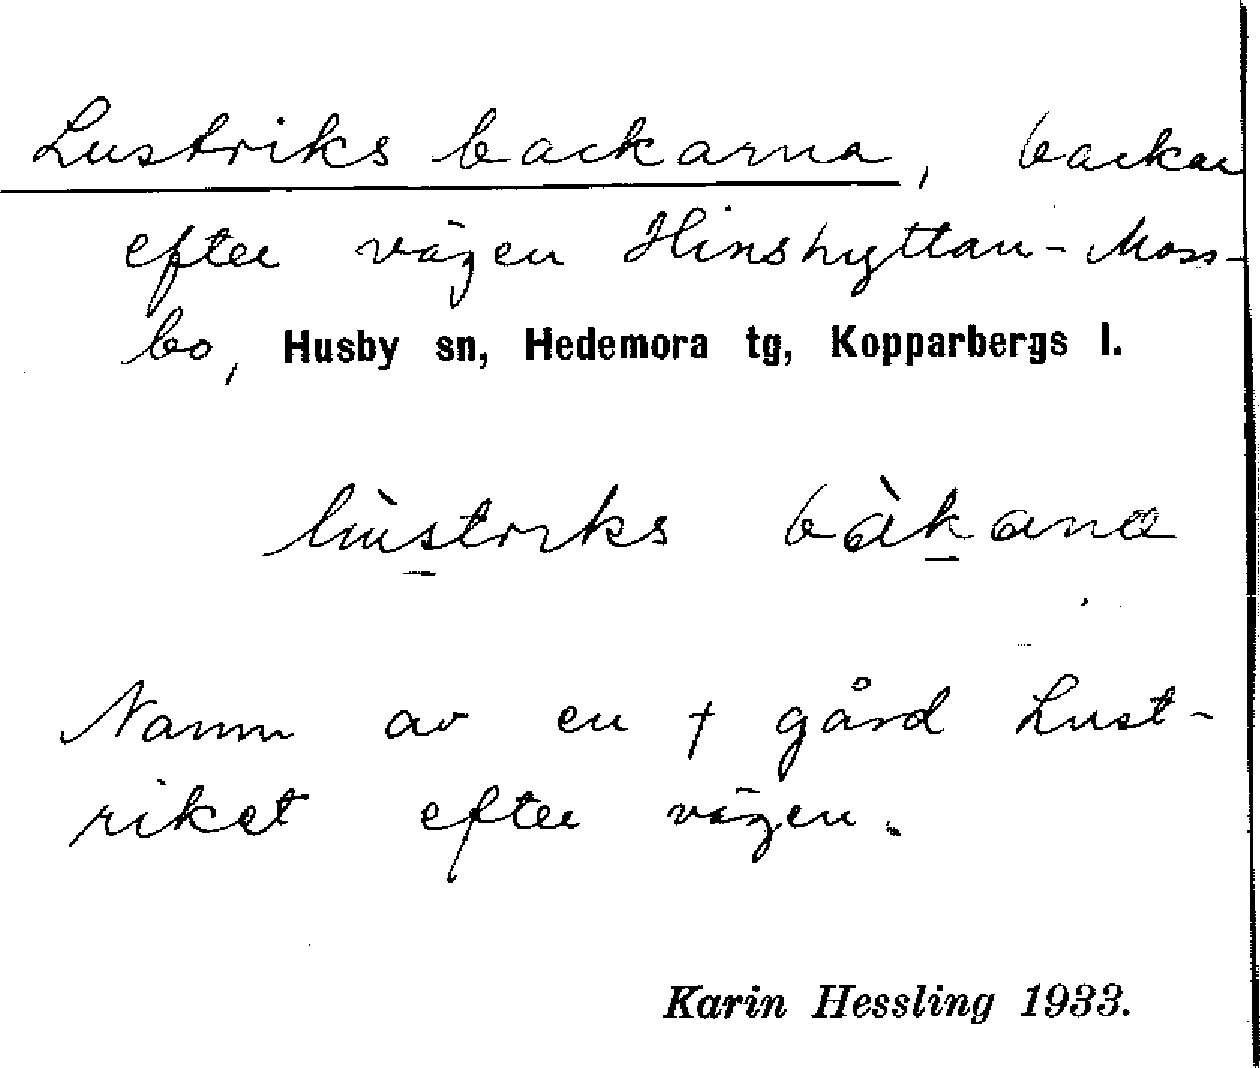 Lustriks backarna, backar
efter vägen Hinshyttan - Moss-
bo, Husby sn, Hedemora tg, Kopparbergs l.
lùstrıks bàkana
Namn av en † gård Lust-
riket efter vägen.
Karin Hessling 1933.